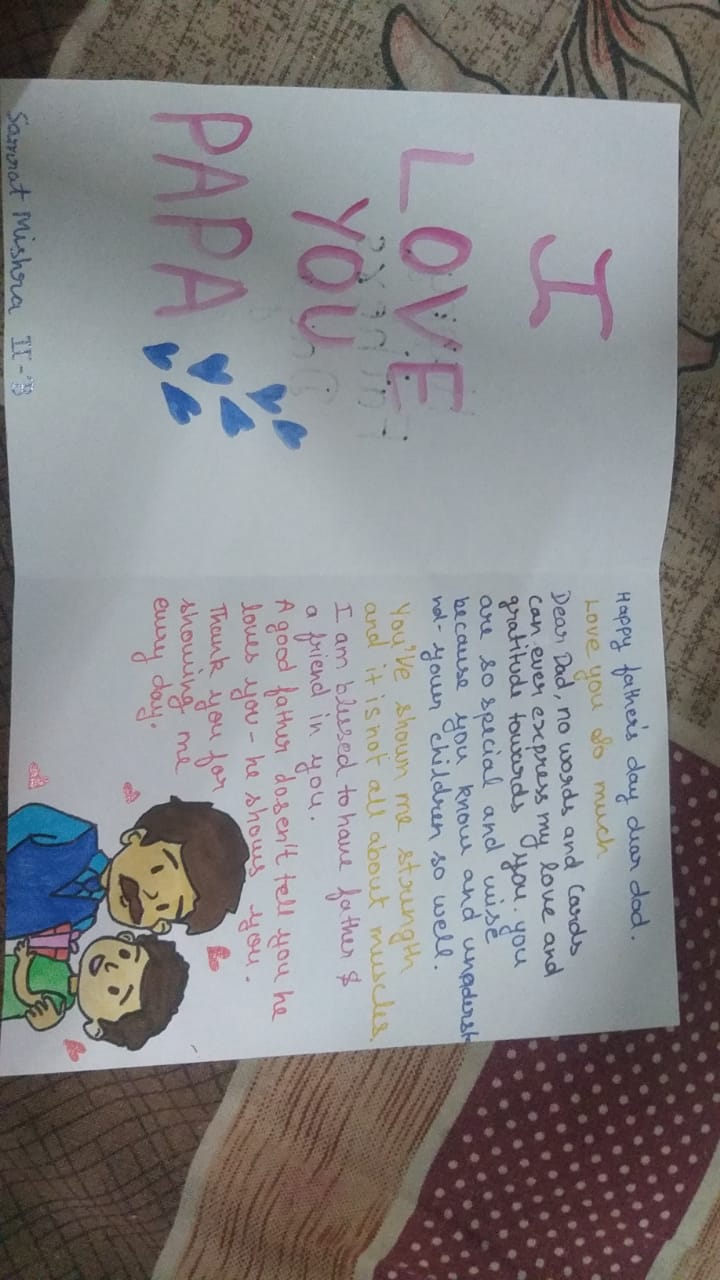 I
LOVE
YOU
PAPA
Samrat Mishra II-B
Happy father's day dear dad.
Love you so much
Dear Dad, no words and Cards
can ever express my love and
gratitude towards you. you
are so special and wise
because you know and understa
nd- your children so well.
You've shown me strength
and it is not all about muscles.
I am blessed to have father &
a friend in you.
A good father dosen't tell you he
loves you - he shows you.
Thank you for
showing me
every day.